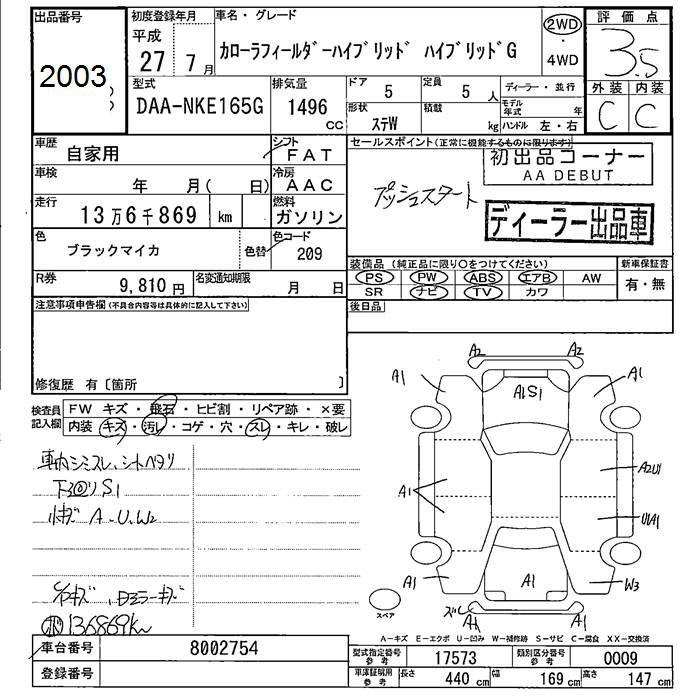 出品番号 初度登録年月 車名・グレード 評価点
2003 平成 27 7月 カローラフィールダーハイブリッド ハイブリッドG 2WD・4WD 3.5
型式 排気量 ドア 定員 ディーラー・並行 外装 内装
DAA-NKE165G 1496 CC 5 5人 モデル年式 年 C C
形状 積載
ステW kg ハンドル 左・右
車歴 自家用 シフト FAT セールスポイント(正常に機能するものに限ります)
初出品コーナー
AA DEBUT
車検 年 月( 日) 冷房 AAC プッシュスタート
走行 13万6千869 km 燃料 ガソリン ディーラー出品車
色 ブラックマイカ 色替 色コード 209
装備品 (純正品に限り○をつけてください) 新車保証書
R券 9,810円 名変通知期限 月 日 PS PW ABS エアB AW 有・無
SR ナビ TV カワ
注意事項申告欄(不具合内容等は具体的に記入して下さい) 後日品
修復歴 有〔箇所 〕
検査員記入欄 FW キズ・飛石・ヒビ割・リペア跡・×要
内装 キズ・汚レ・コゲ・穴・スレ・キレ・破レ
A2 A2
A1 A1S1 A1
車内シミスレ、シートヘタリ
S1
小キズ A.U.W2
A1 A2U1
U1A1
A1 A1 W3
ドアミラーキズ
136869km
スペア A1
A-キズ E-エクボ U-凹み W-補修跡 S-サビ C-腐食 XX-交換済
車台番号 8002754 型式指定番号 参考 17573 類別区分番号 参考 0009
登録番号 車庫証明用 参考 長さ 440 cm 幅 169 cm 高さ 147 cm